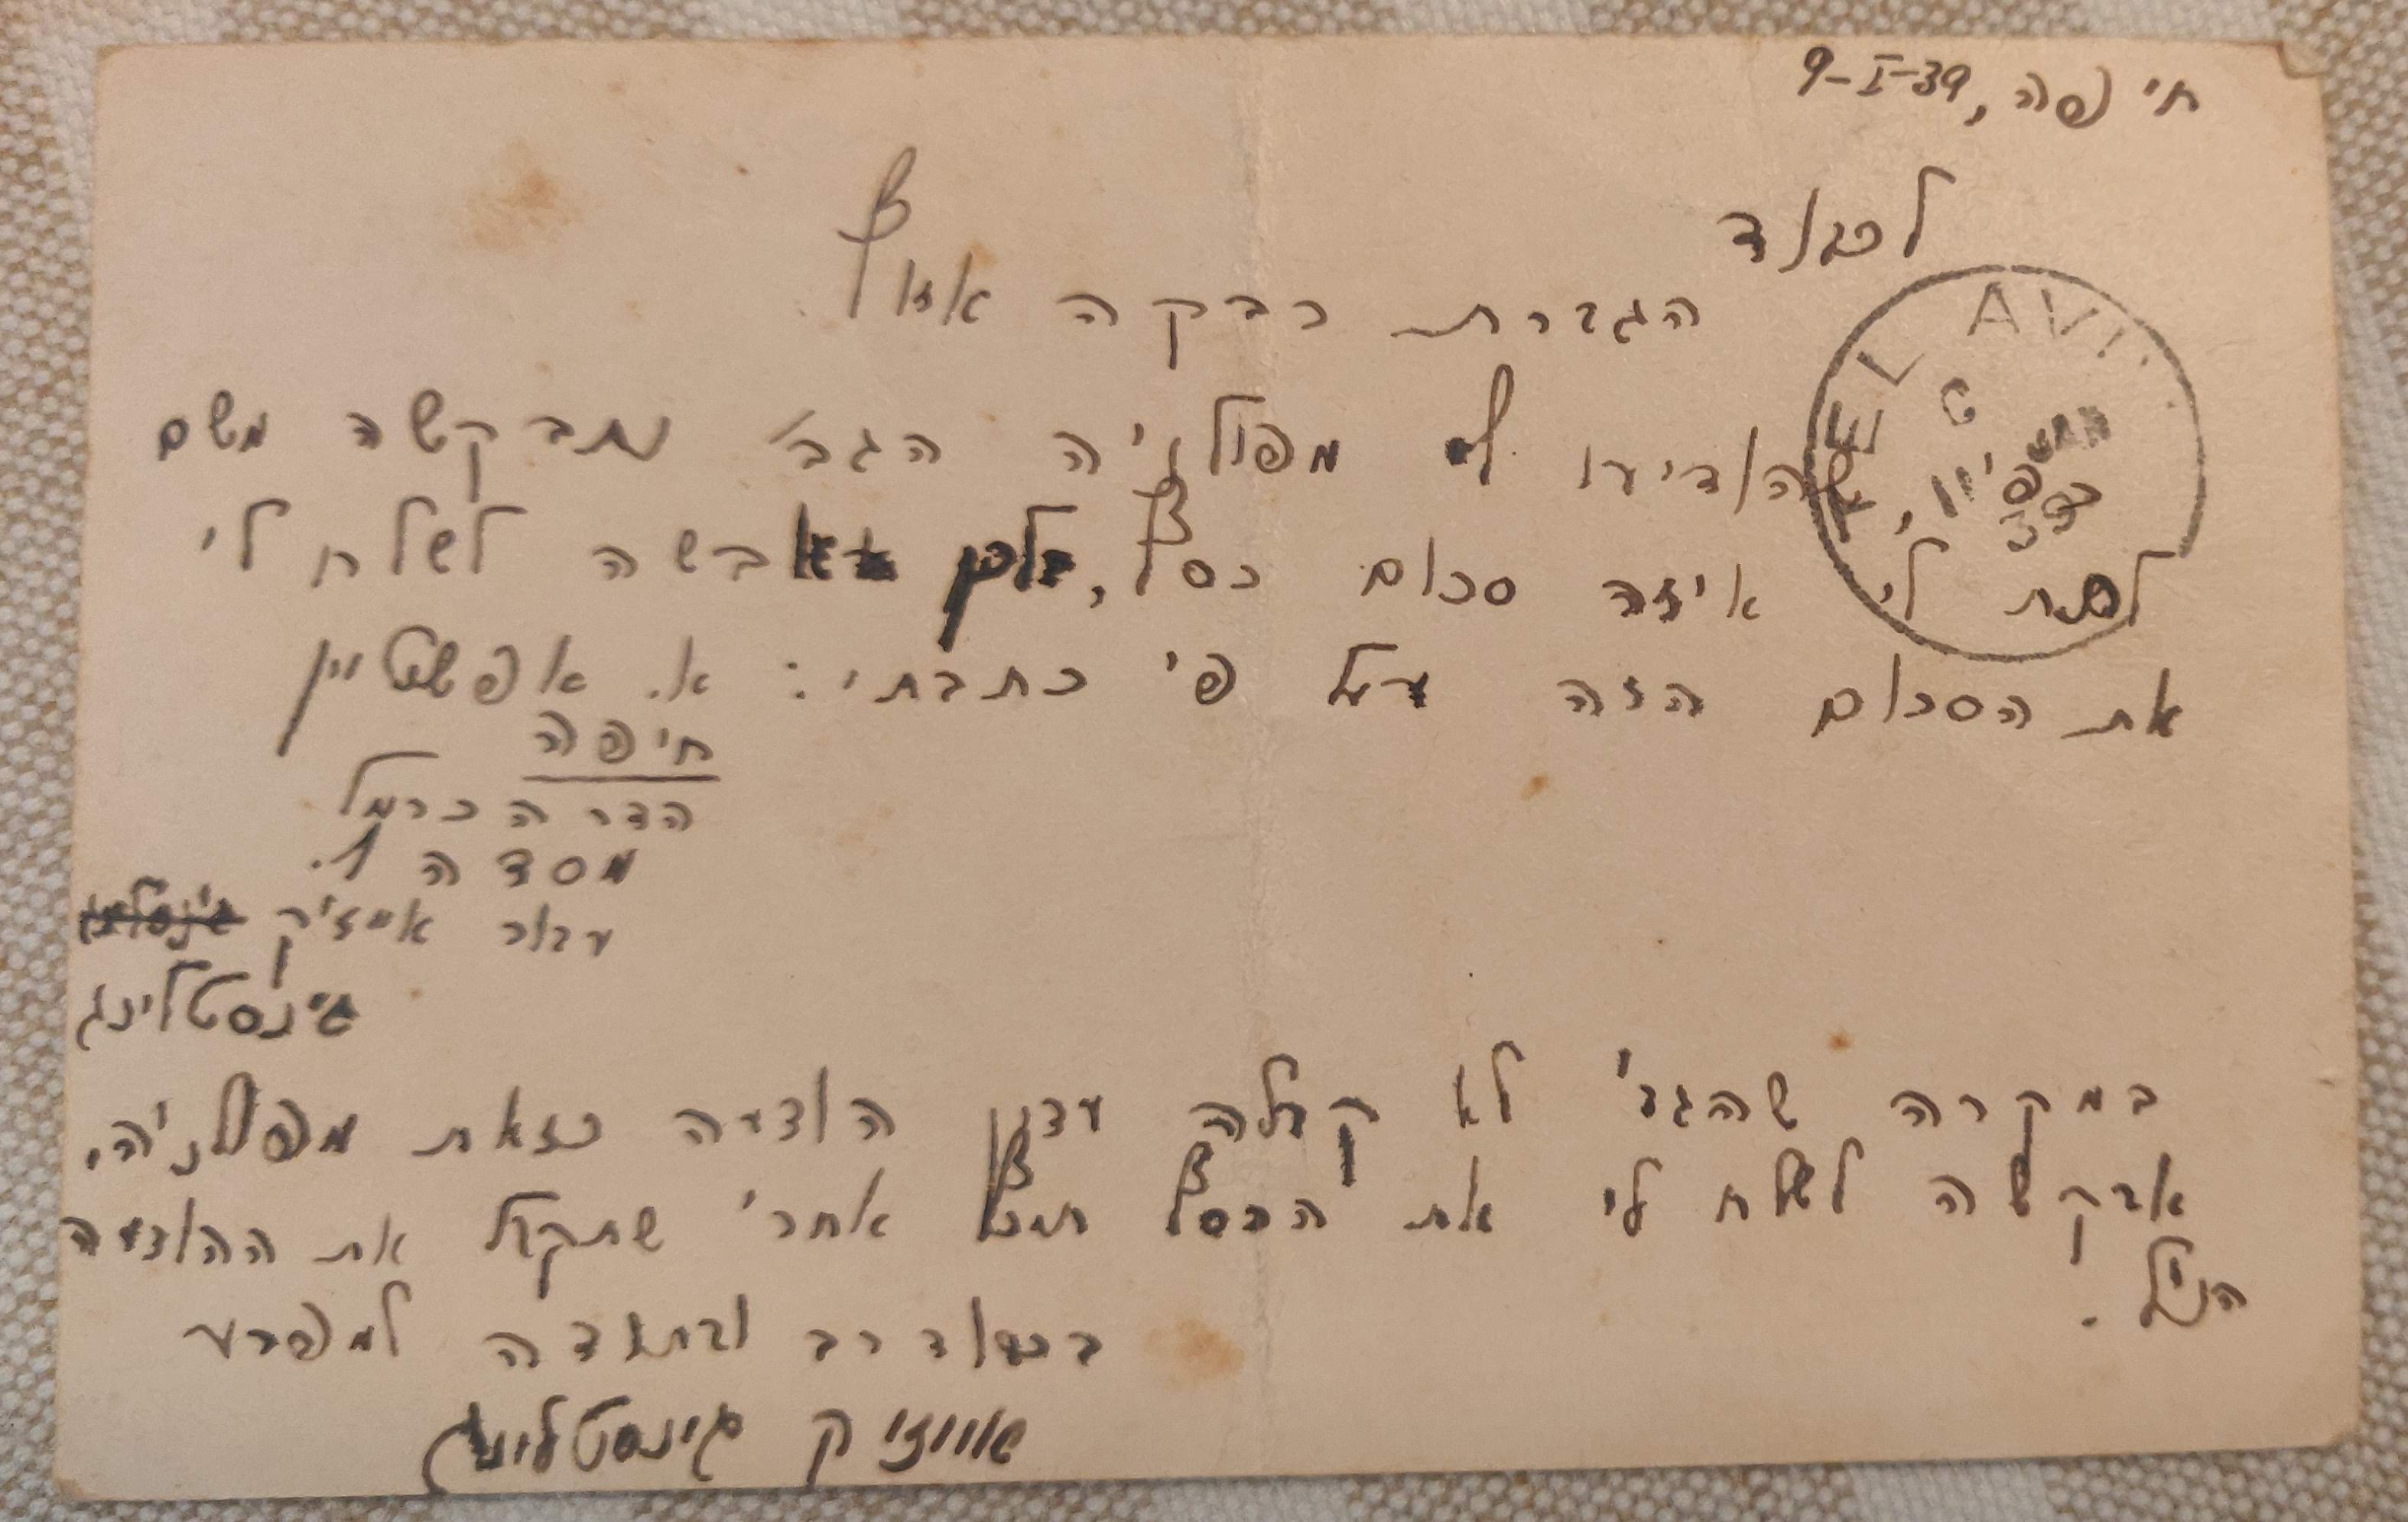 חיפה, 9-I-39
לכבוד
הגברת רבקה אזוף
TEL AVIV
הודיעו לי מפולניה הגב' נתבקשה משם
לתת לי איזה סכום כסף, ולכן אבקשה לשלח לי
את הסכום הזה על פי כתבתי: א. אפשטיין
חיפה
הדר הכרמל
מסדה 1.
עבור אייזיק
גינסטלינג
במקרה שהגב' לא קבלה עדין הודעה כזאת מפולניה,
אבקשה לשלח לי את הכסף תיכף אחרי שתקבל את ההודעה
הנ"ל.
בכבוד רב ובתודה למפרע
אייזיק גינסטלינג